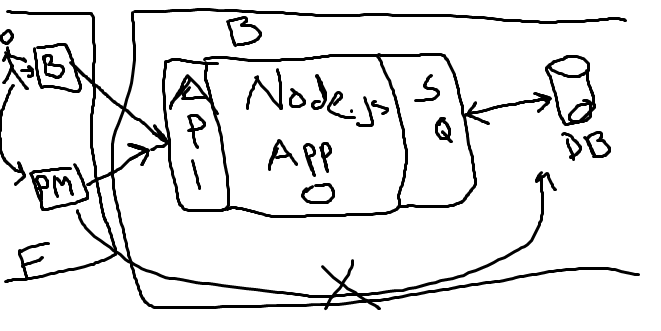 B
B
API
Node.js
App
SQ
DB
PM
F